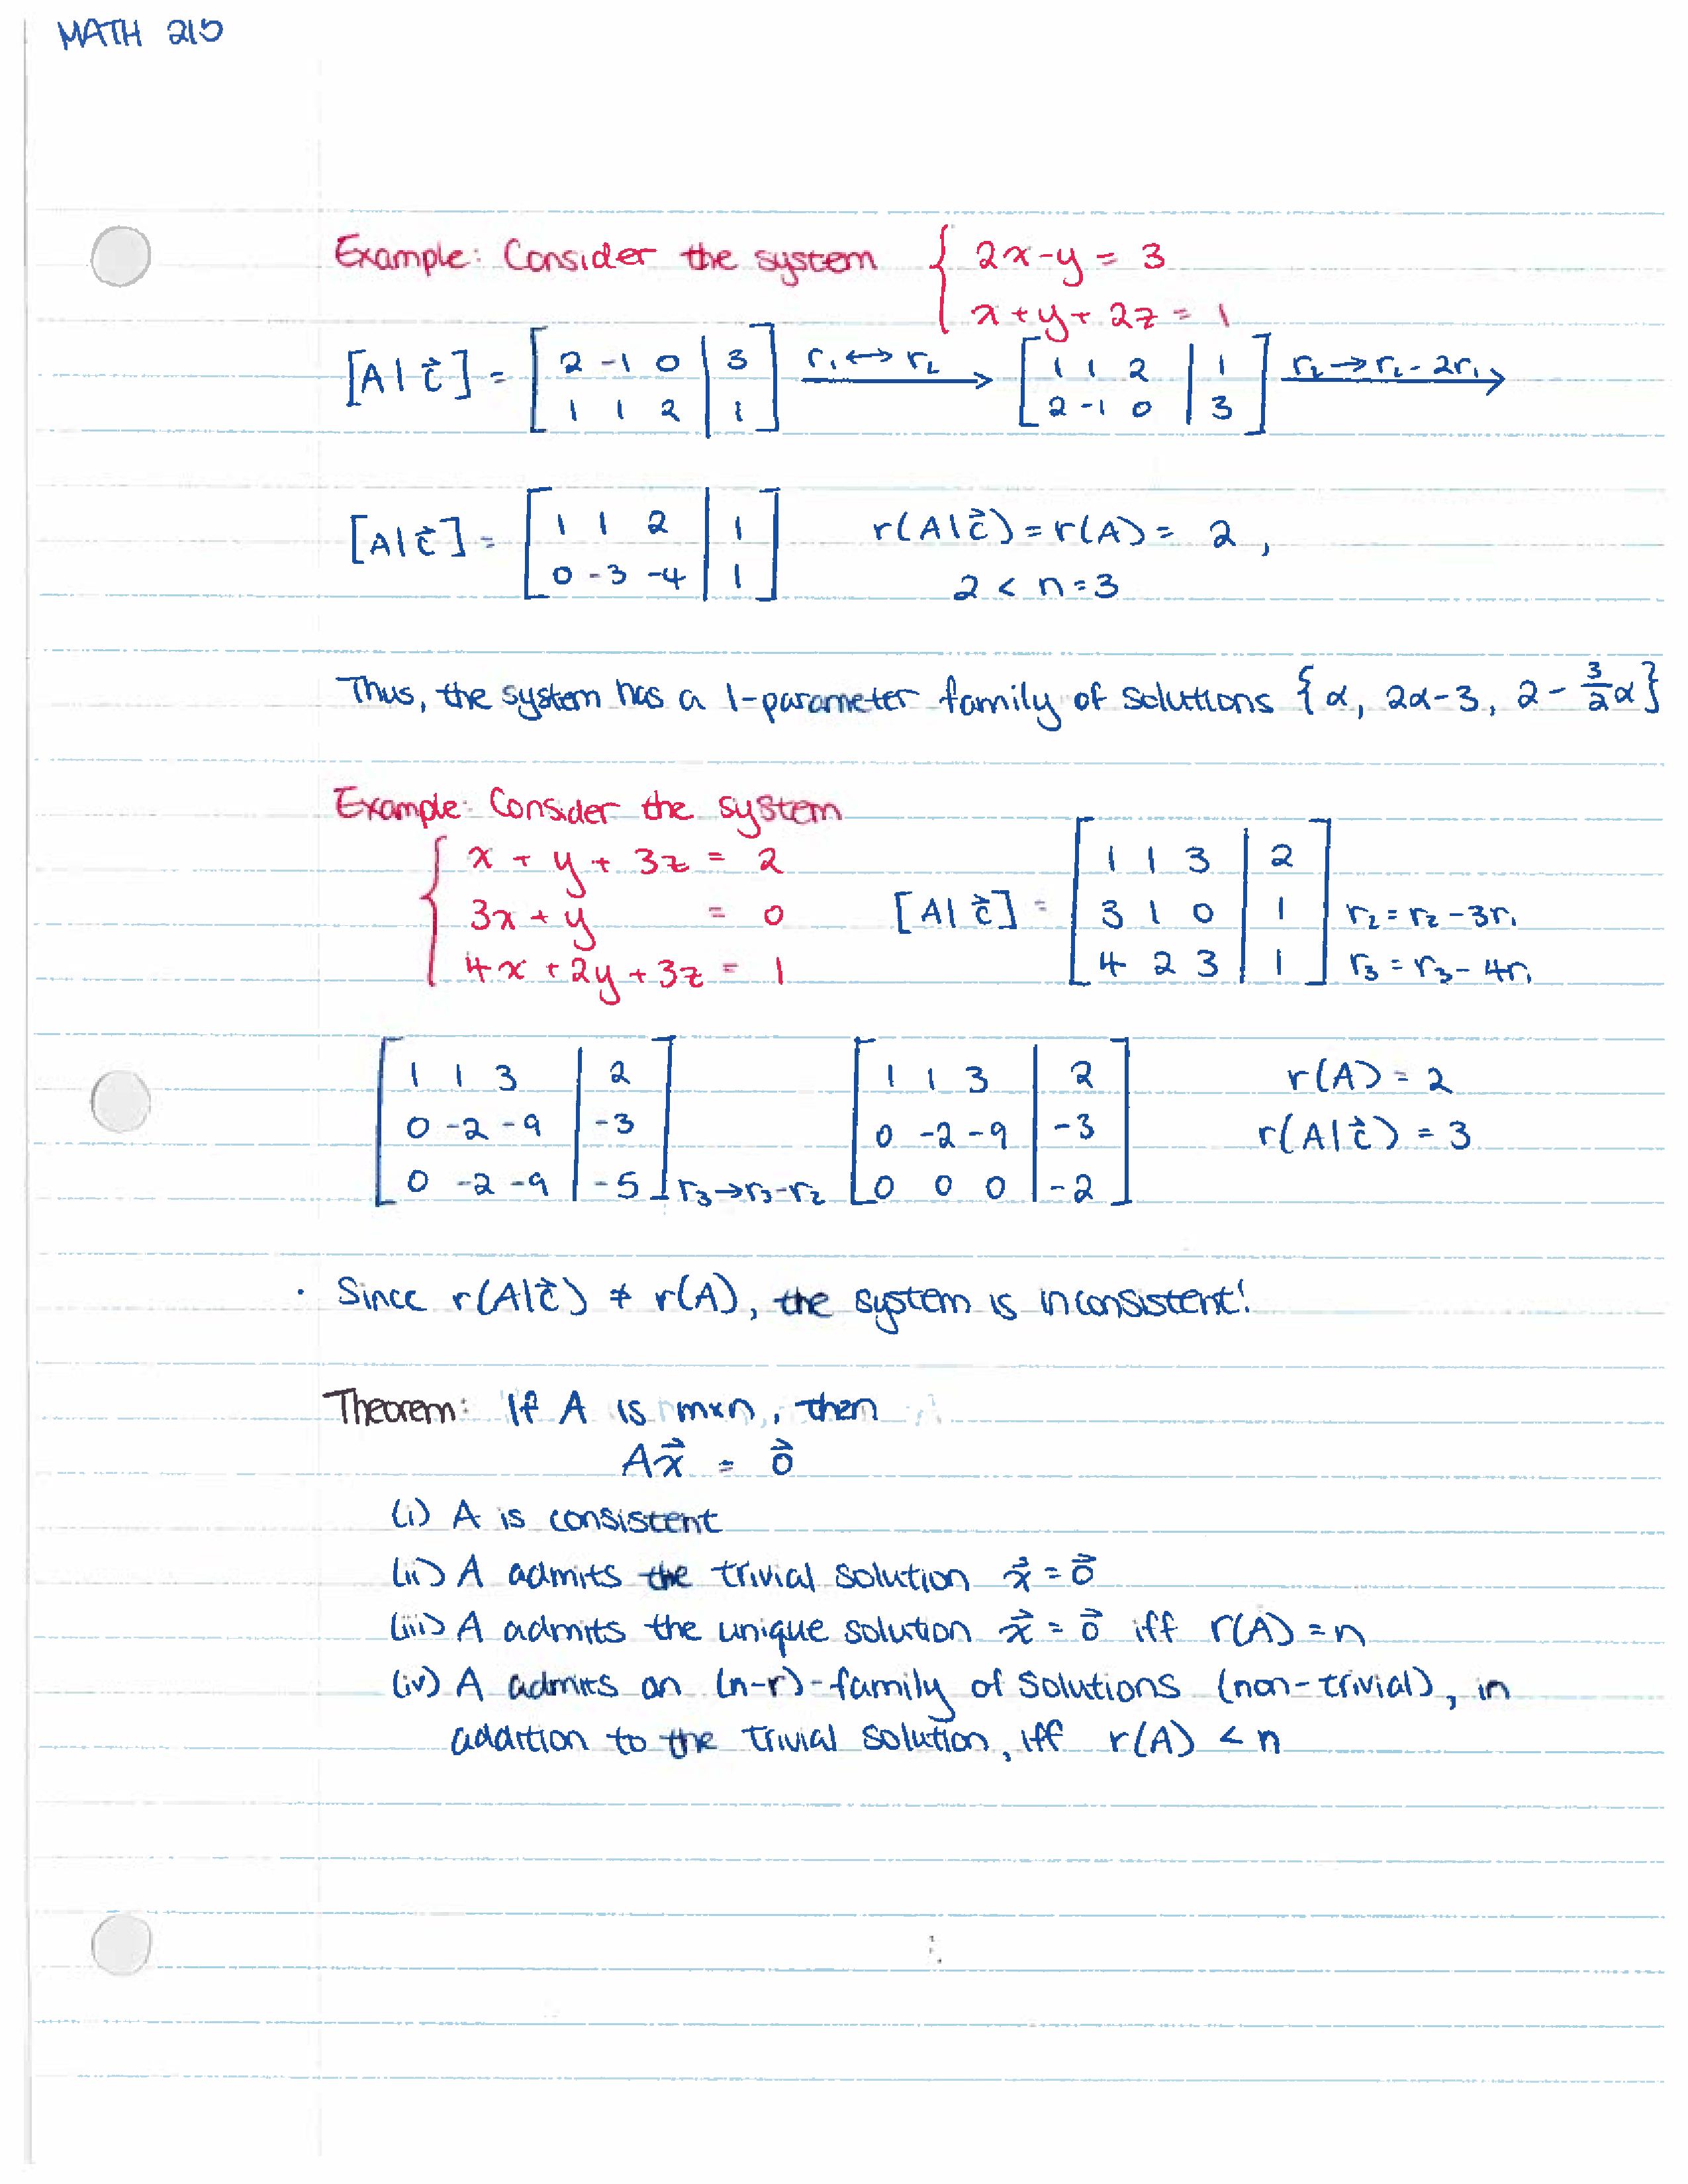 MATH 215
Example: Consider the system { 2x-y = 3
x+y+2z = 1
[A|c⃗] = [2 -1 0 | 3; 1 1 2 | 1] r₁↔r₂ → [1 1 2 | 1; 2 -1 0 | 3] r₂→r₂-2r₁ →
[A|c⃗] = [1 1 2 | 1; 0 -3 -4 | 1] r(A|c⃗) = r(A) = 2,
2 < n = 3
Thus, the system has a 1-parameter family of solutions {α, 2α-3, 2-3/2α}
Example: Consider the system
{ x + y + 3z = 2
3x + y = 0
4x + 2y + 3z = 1
[A|c⃗] = [1 1 3 | 2; 3 1 0 | 1; 4 2 3 | 1] r₂=r₂-3r₁
r₃=r₃-4r₁
[1 1 3 | 2; 0 -2 -9 | -3; 0 -2 -9 | -5] r₃→r₃-r₂ [1 1 3 | 2; 0 -2 -9 | -3; 0 0 0 | -2] r(A) = 2
r(A|c⃗) = 3
· Since r(A|c⃗) ≠ r(A), the system is inconsistent!
Theorem: If A is m×n, then
Ax⃗ = 0⃗
(i) A is consistent
(ii) A admits the trivial solution x⃗ = 0⃗
(iii) A admits the unique solution x⃗ = 0⃗ iff r(A) = n
(iv) A admits an (n-r)-family of solutions (non-trivial), in
addition to the trivial solution, iff r(A) < n